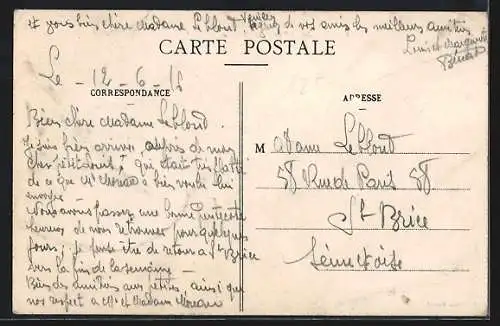 et gros bien chère Madame Leblond, Veuillez de vos amis les meilleurs amitiés
Louis et Marguerite
CARTE POSTALE
Le - 12 - 6 - 18
CORRESPONDANCE
Bien chère Madame Leblond.
Je suis bien arrivé auprès de mon
cher petit qui était très flatté
de ce que Mr Moreau a bien voulu lui
envoyer -
Nous avons passez une bonne pentecote
heureux de nous retrouver pour quelques
jours, je pense être de retour à St Brice
vers la fin de la semaine -
Bien des amitiés aux petites, ainsi que
nos respect a Mr et Madame Moreau
ADRESSE
M adame Leblond
58 Rue de Paris 58
St Brice
Seine et oise